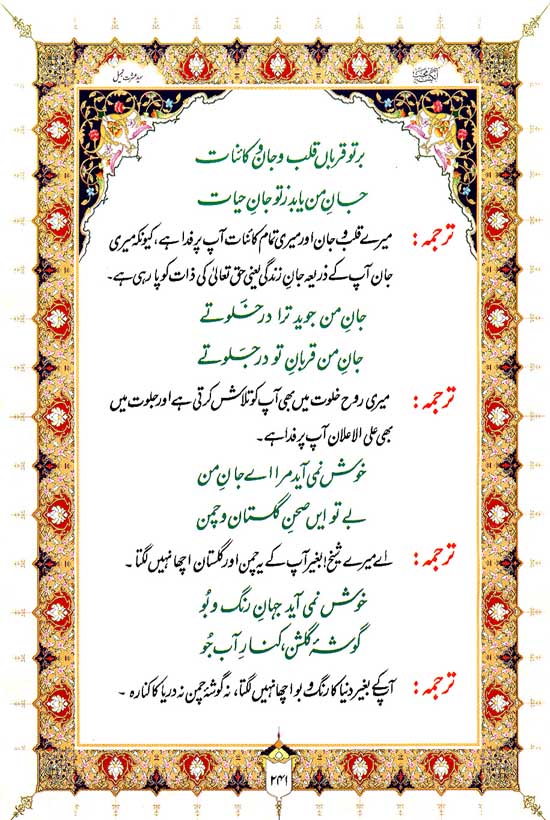 بر تو قرباں قلب و جان و کائنات
جانِ من یابد ز تو جانِ حیات
ترجمہ: میرے قلب و جان اور میری تمام کائنات آپ پر فدا ہے، کیونکہ میری
جان آپ کے ذریعہ جانِ زندگی یعنی حق تعالیٰ کی ذات کو پا رہی ہے۔
جانِ من جوید ترا در خَلوتے
جانِ من قربانِ تو در جَلوتے
ترجمہ: میری روح خلوت میں بھی آپ کو تلاش کرتی ہے اور جلوت میں
بھی علی الاعلان آپ پر فدا ہے۔
خوش نمی آید مرا اے جانِ من
بے تو ایں صحنِ گلستان و چمن
ترجمہ: اے میرے شیخ! بغیر آپ کے یہ چمن اور گلستان اچھا نہیں لگتا۔
خوش نمی آید جہانِ رنگ و بُو
گوشۂ گلشن، کنارِ آب جُو
ترجمہ: آپ کے بغیر دنیا کا رنگ و بو اچھا نہیں لگتا، نہ گوشۂ چمن نہ دریا کا کنارہ۔
۲۴۱